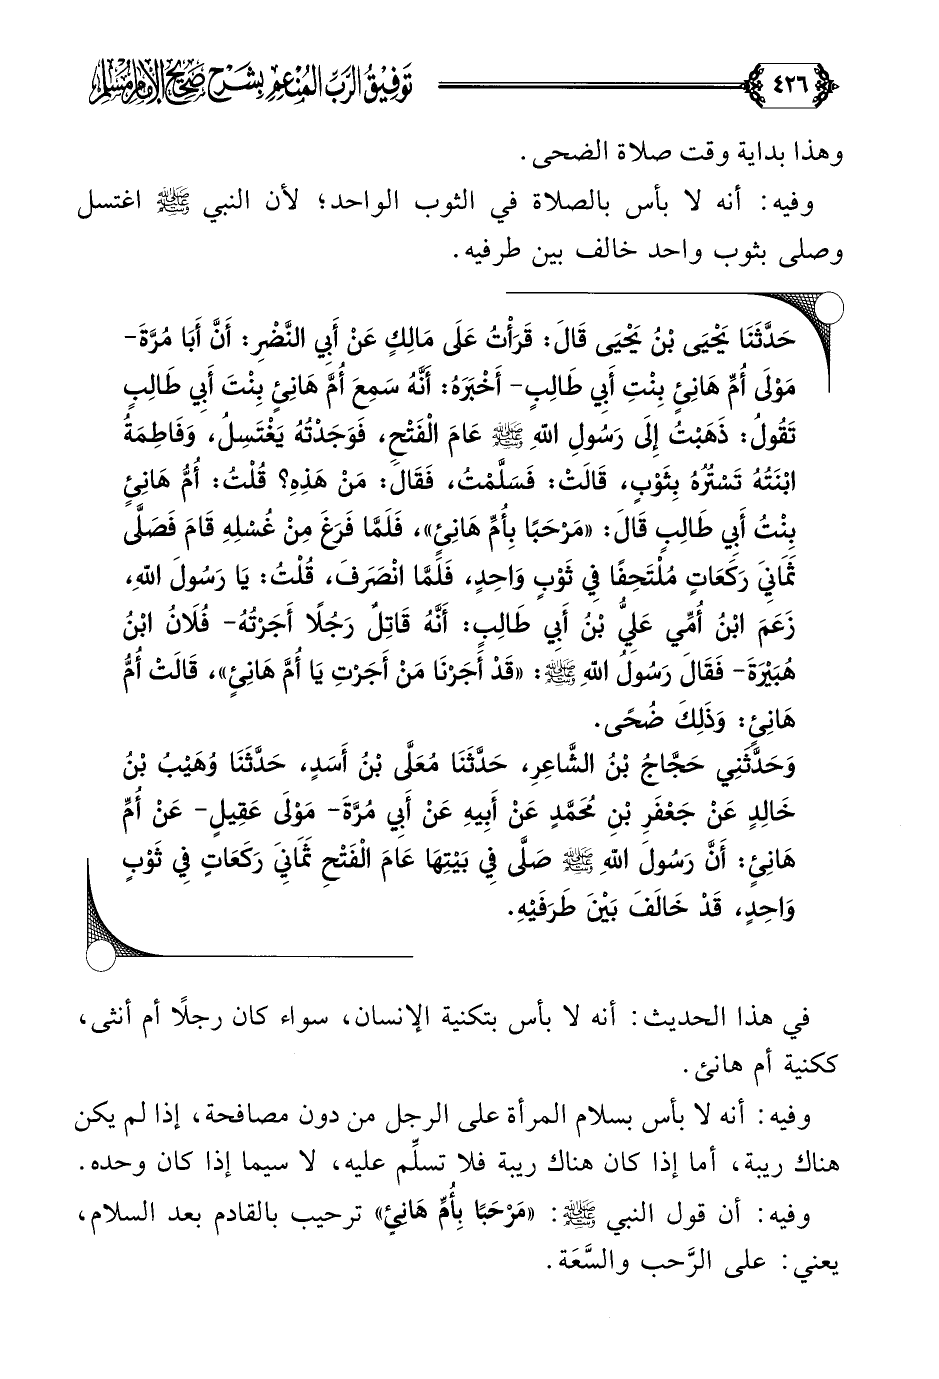 ٤٢٦ توفيق الرب المنعم بشرح صحيح الإمام مسلم
وهذا بداية وقت صلاة الضحى.
وفيه: أنه لا بأس بالصلاة في الثوب الواحد؛ لأن النبي ﷺ اغتسل
وصلى بثوب واحد خالف بين طرفيه.
حَدَّثَنَا يَحْيَى بْنُ يَحْيَى قَالَ: قَرَأْتُ عَلَى مَالِكٍ عَنْ أَبِي النَّضْرِ: أَنَّ أَبَا مُرَّةَ-
مَوْلَى أُمِّ هَانِئٍ بِنْتِ أَبِي طَالِبٍ- أَخْبَرَهُ: أَنَّهُ سَمِعَ أُمَّ هَانِئٍ بِنْتَ أَبِي طَالِبٍ
تَقُولُ: ذَهَبْتُ إِلَى رَسُولِ اللهِ ﷺ عَامَ الْفَتْحِ، فَوَجَدْتُهُ يَغْتَسِلُ، وَفَاطِمَةُ
ابْنَتُهُ تَسْتُرُهُ بِثَوْبٍ، قَالَتْ: فَسَلَّمْتُ، فَقَالَ: مَنْ هَذِهِ؟ قُلْتُ: أُمُّ هَانِئٍ
بِنْتُ أَبِي طَالِبٍ قَالَ: «مَرْحَبًا بِأُمِّ هَانِئٍ»، فَلَمَّا فَرَغَ مِنْ غُسْلِهِ قَامَ فَصَلَّى
ثَمَانِيَ رَكَعَاتٍ مُلْتَحِفًا فِي ثَوْبٍ وَاحِدٍ، فَلَمَّا انْصَرَفَ، قُلْتُ: يَا رَسُولَ اللهِ،
زَعَمَ ابْنُ أُمِّي عَلِيُّ بْنُ أَبِي طَالِبٍ: أَنَّهُ قَاتِلٌ رَجُلًا أَجَرْتُهُ- فُلَانُ ابْنُ
هُبَيْرَةَ- فَقَالَ رَسُولُ اللهِ ﷺ: «قَدْ أَجَرْنَا مَنْ أَجَرْتِ يَا أُمَّ هَانِئٍ»، قَالَتْ أُمُّ
هَانِئٍ: وَذَلِكَ ضُحًى.
وَحَدَّثَنِي حَجَّاجُ بْنُ الشَّاعِرِ، حَدَّثَنَا مُعَلَّى بْنُ أَسَدٍ، حَدَّثَنَا وُهَيْبُ بْنُ
خَالِدٍ عَنْ جَعْفَرِ بْنِ مُحَمَّدٍ عَنْ أَبِيهِ عَنْ أَبِي مُرَّةَ- مَوْلَى عَقِيلٍ- عَنْ أُمِّ
هَانِئٍ: أَنَّ رَسُولَ اللهِ ﷺ صَلَّى فِي بَيْتِهَا عَامَ الْفَتْحِ ثَمَانِيَ رَكَعَاتٍ فِي ثَوْبٍ
وَاحِدٍ، قَدْ خَالَفَ بَيْنَ طَرَفَيْهِ.
في هذا الحديث: أنه لا بأس بتكنية الإنسان، سواء كان رجلًا أم أنثى،
ككنية أم هانئ.
وفيه: أنه لا بأس بسلام المرأة على الرجل من دون مصافحة، إذا لم يكن
هناك ريبة، أما إذا كان هناك ريبة فلا تسلِّم عليه، لا سيما إذا كان وحده.
وفيه: أن قول النبي ﷺ: «مَرْحَبًا بِأُمِّ هَانِئٍ» ترحيب بالقادم بعد السلام،
يعني: على الرَّحب والسَّعَة.